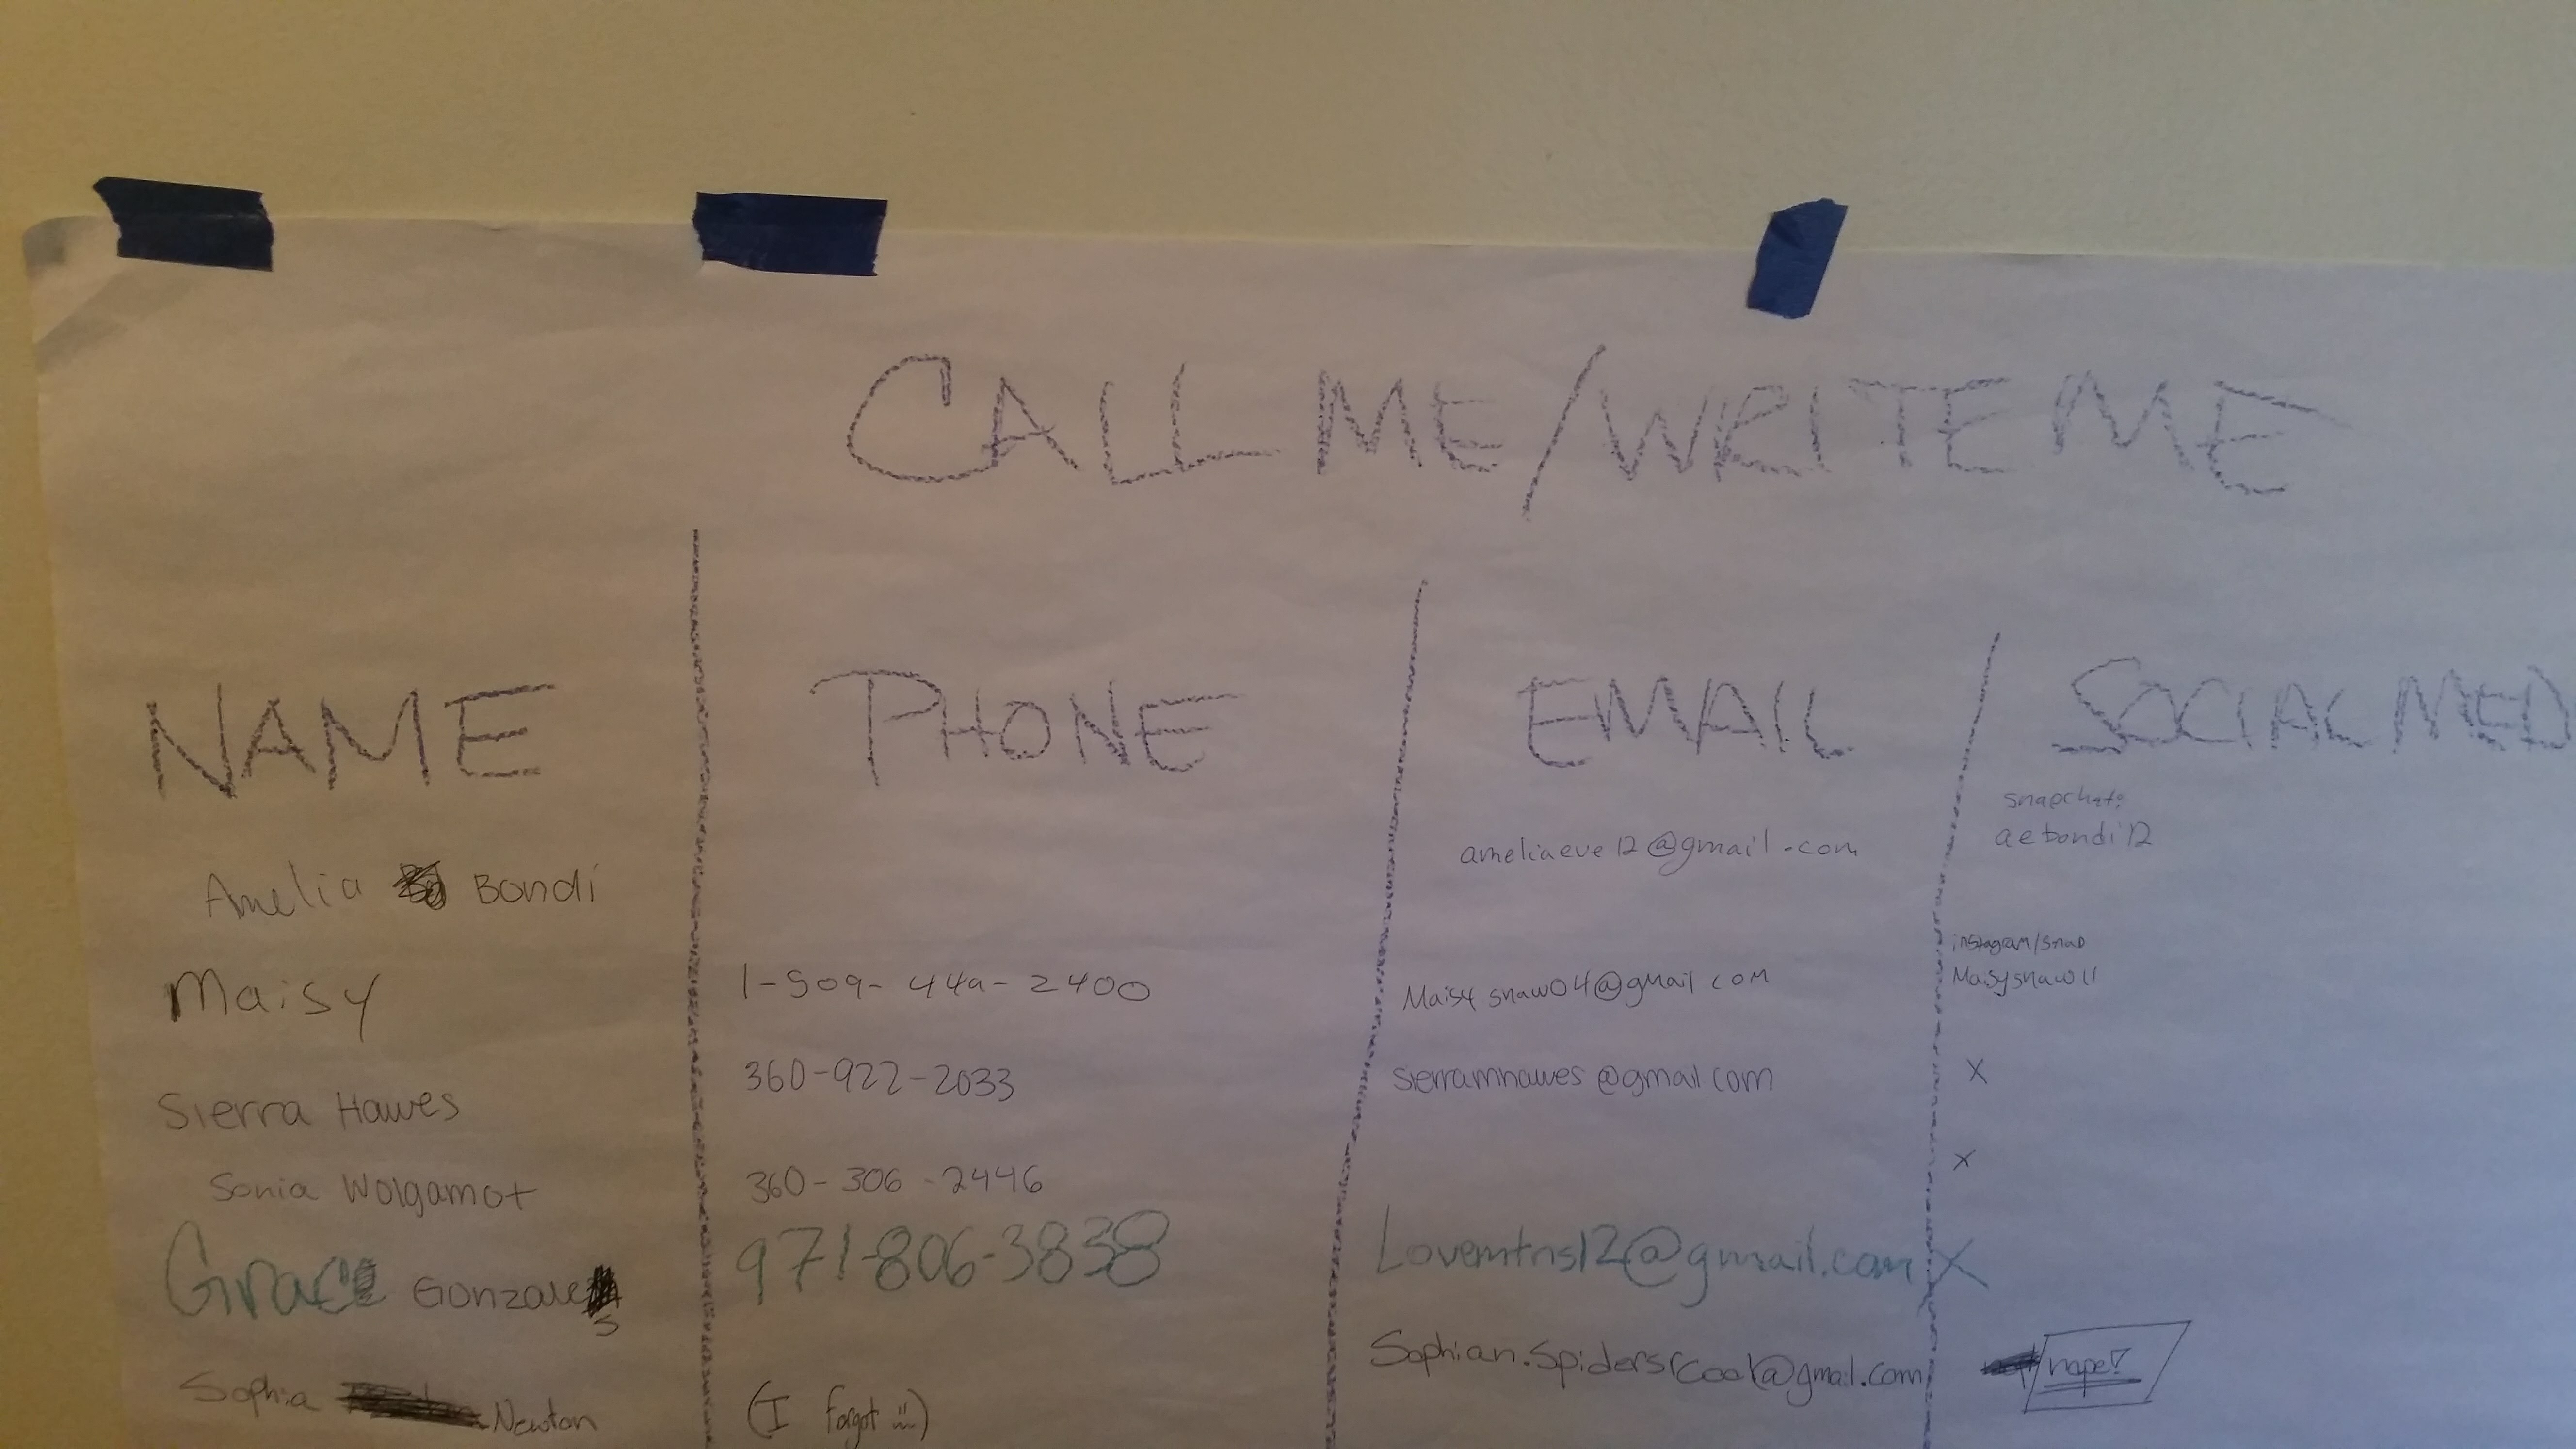 CALL ME/WRITE ME
NAME PHONE EMAIL SOCIAL MED
Amelia Bondi ameliaeve12@gmail.com snapchat: aebondi12
Maisy 1-509-449-2400 Maisyshaw04@gmail.com instagram/snap Maisyshaw11
Sierra Hawes 360-922-2033 sierramhawes@gmail.com X
Sonia Wolgamot 360-306-2446 X
Grace Gonzales 971-806-3838 Lovemtns12@gmail.com X
Sophia Newton (I forgot :) Sophian.spidersrcool@gmail.com nope!